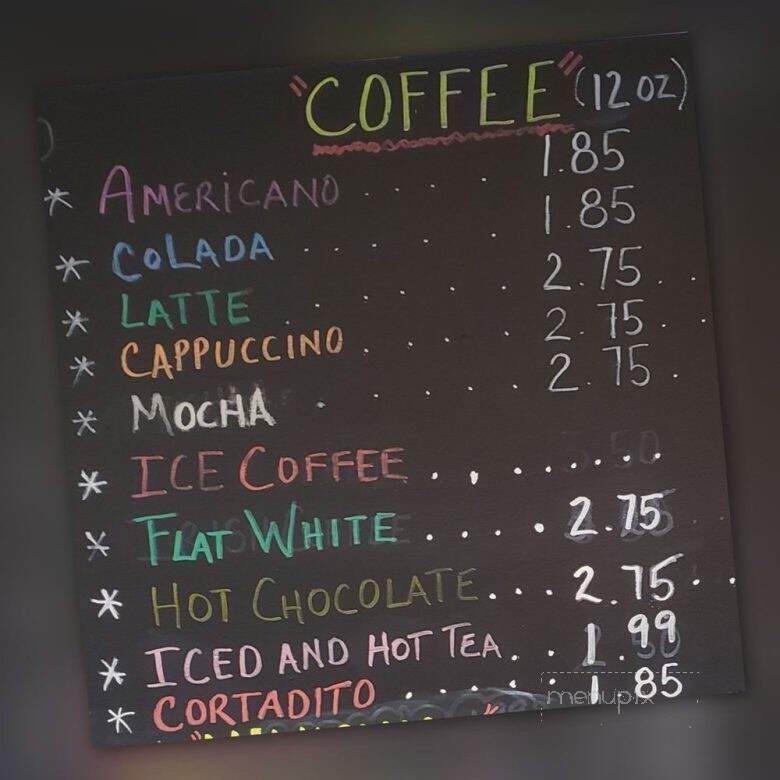 "COFFEE" (12 OZ)
* AMERICANO . . . . 1.85
* COLADA . . . . . 1.85
* LATTE . . . . . . 2.75 . .
* CAPPUCCINO . . . . . 2.75 . .
* MOCHA . . . . . 2.75 .
* ICE COFFEE . . . . . . . .
* FLAT WHITE . . . . . 2.75
* HOT CHOCOLATE . . . . 2.75 . .
* ICED AND HOT TEA . . . 1.99
* CORTADITO . . . . . . 1.85
menupix